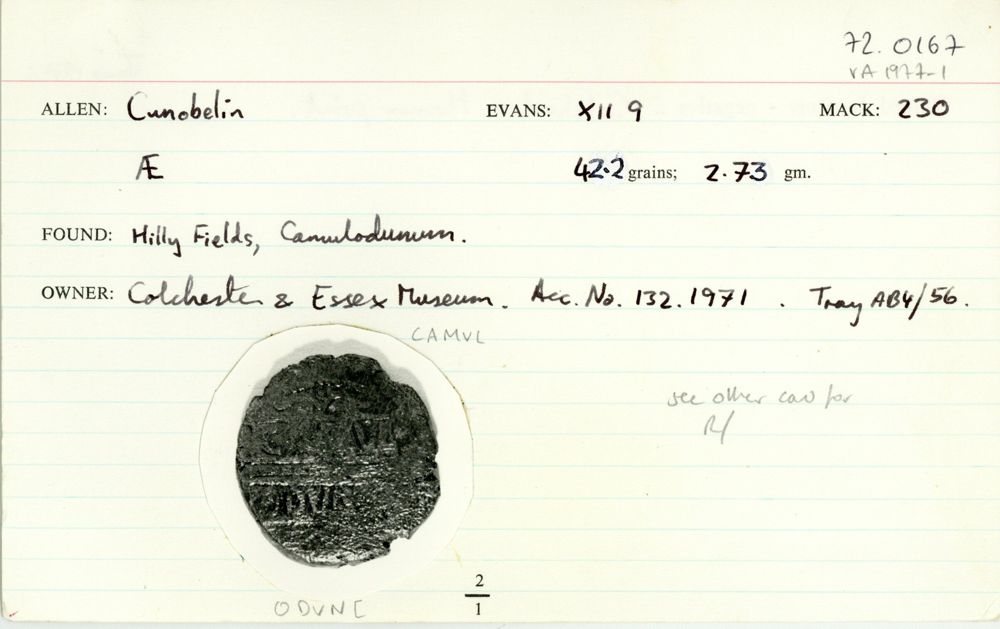 72.0167
VA 1977-1
ALLEN: Cunobelin EVANS: XII 9 MACK: 230
Æ 42.2 grains; 2.73 gm.
FOUND: Hilly Fields, Camulodunum.
OWNER: Colchester & Essex Museum. Acc. No. 132.1971 . Tray AB4/56.
CAMVL
see other card for
R/
ODVNC
2
1